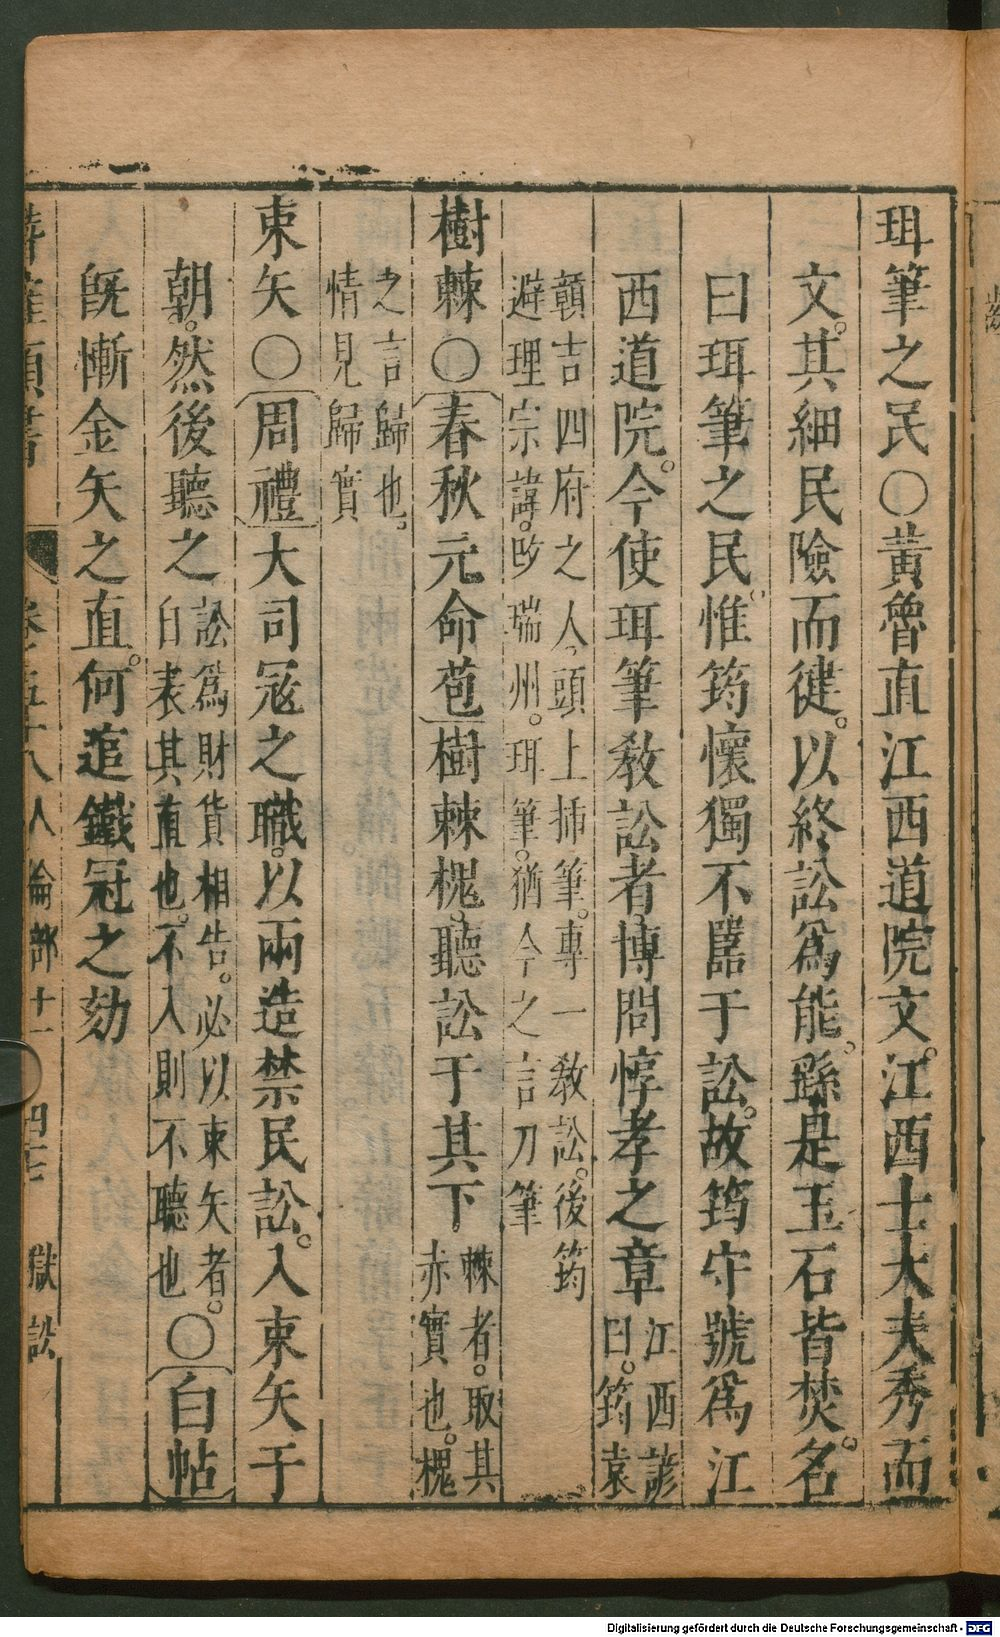 珥筆之民〇黃魯直江西道院文。江西士大夫秀而
文。其細民險而徤。以終訟為能。繇是玉石皆焚。名
曰珥筆之民。惟筠懷獨不嚚于訟。故筠守號為江
西道院。今使珥筆教訟者博問惇孝之章江西諺曰。筠袁
贑吉四府之人。頭上揷筆。專一教訟。後筠避理宗諱。改瑞州。珥筆。猶今之言刀筆
樹棘〇春秋元命苞樹棘槐。聽訟于其下棘者。取其赤實也。槐
之言歸也。情見歸實
束矢〇周禮大司寇之職。以兩造禁民訟。入束矢于
朝。然後聽之訟為財貨相告。必以束矢者。白表其直也。不入則不聽也。〇白帖
旣慚金矢之直。何逭鐵冠之劾
類書
卷之五十八 人倫部十一 獄訟
Digitalisierung gefördert durch die Deutsche Forschungsgemeinschaft - DFG